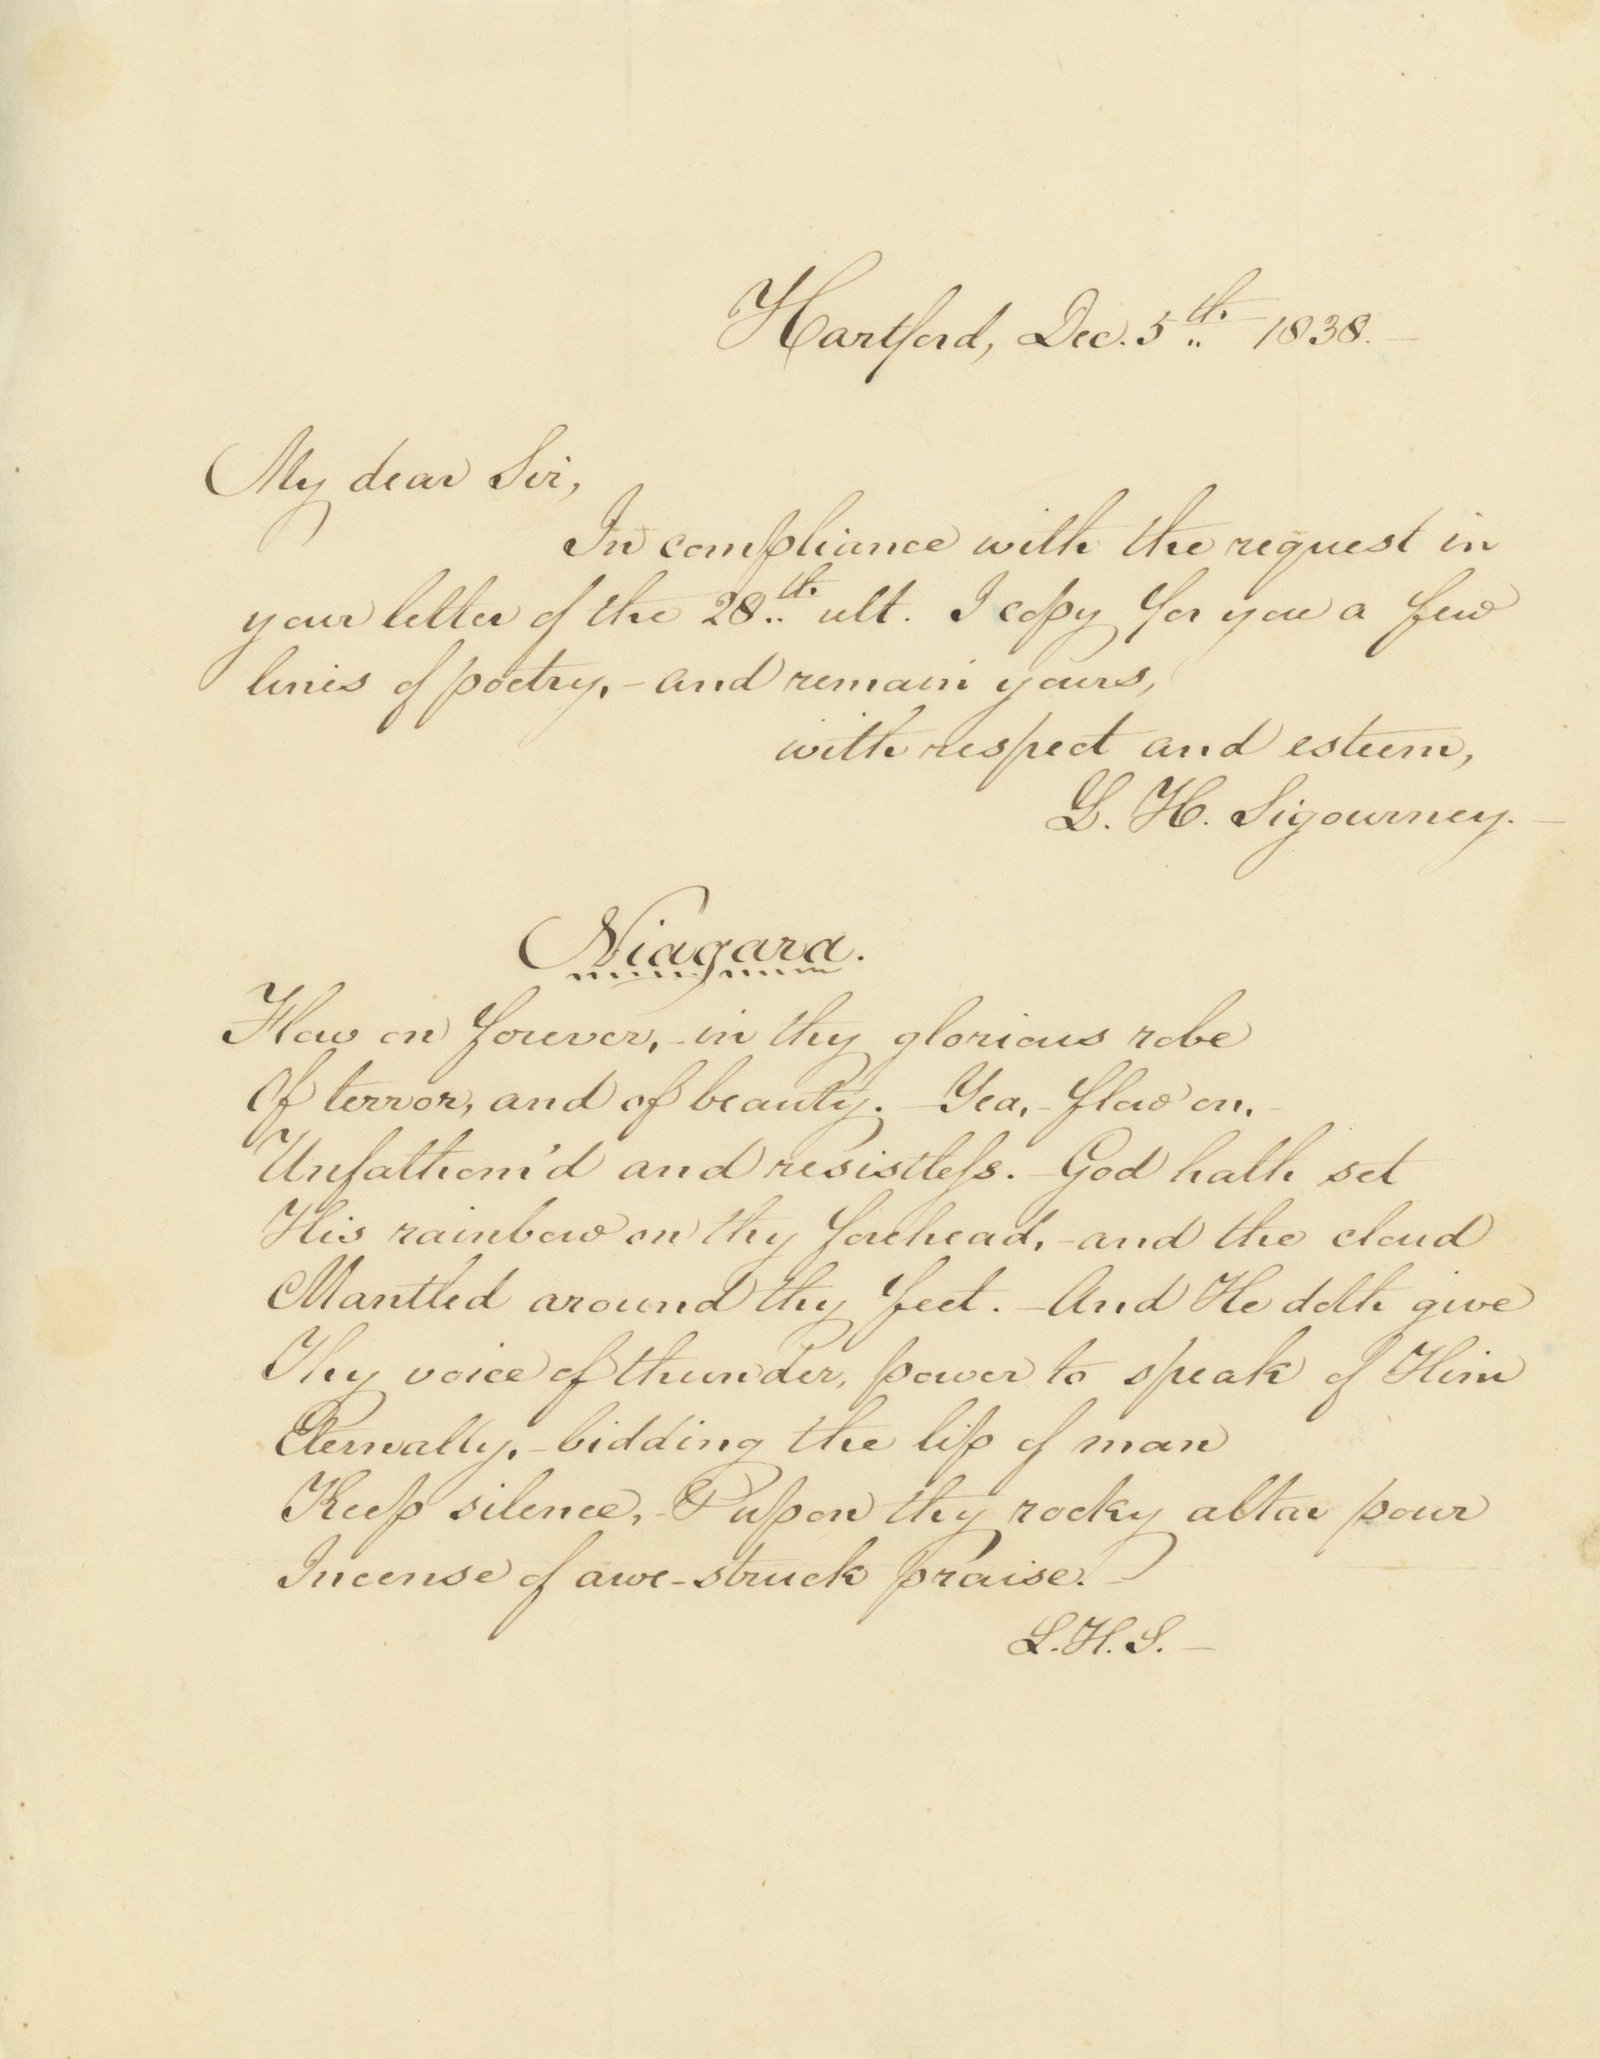 Hartford, Dec. 5th. 1838. -
My dear Sir,
In compliance with the request in
your letter of the 28th. ult. I copy for you a few
lines of poetry, - and remain yours,
with respect and esteem,
L. H. Sigourney. -
Niagara.
Flow on forever, - in thy glorious robe
Of terror, and of beauty. - Yea, - flow on, -
Unfathom'd and resistless. - God hath set
His rainbow on thy forehead, - and the cloud
Mantled around thy feet. - And He doth give
Thy voice of thunder, power to speak of Him
Eternally, - bidding the lip of man
Keep silence, - & upon thy rocky altar pour
Incense of awe-struck praise. -
L.H.S. -